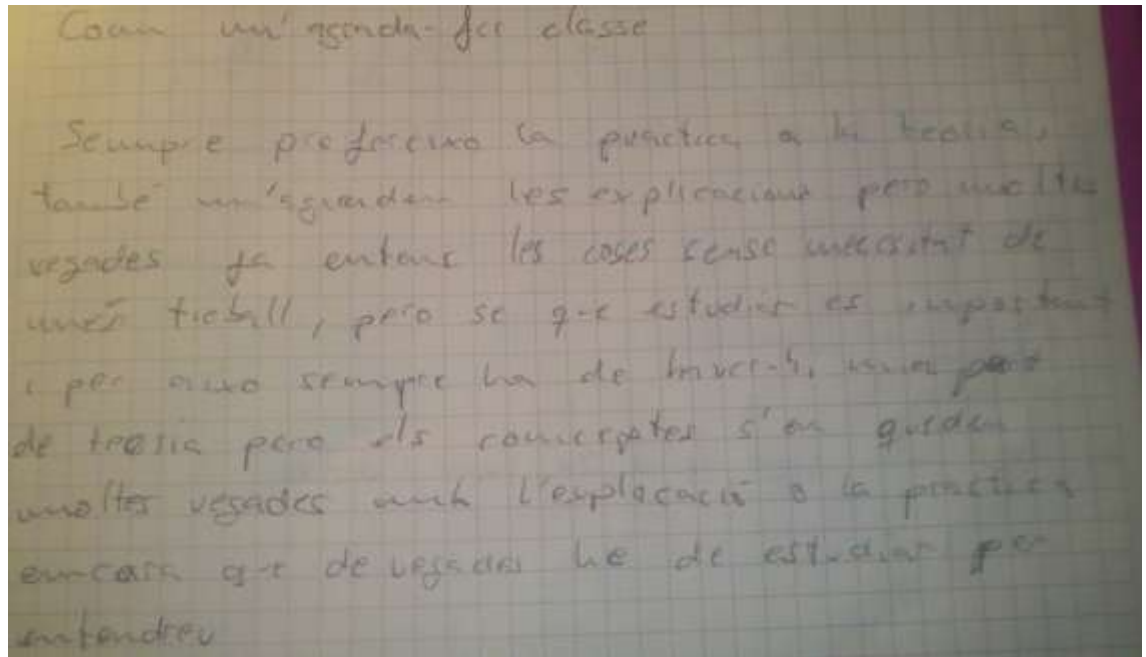 Com m'agrada fer classe
Sempre prefereixo la practica a la teoria,
també m'agraden les explicacions pero moltes
vegades ja entenc les coses sense necesitat de
més treball, pero se que estudiar es important
i per aixo sempre ha de haver-hi una part
de teoria pero els conceptes s'em queden
moltes vegades amb l'explacació o la practica
encara que de vegades he de estudiar per
entendreu